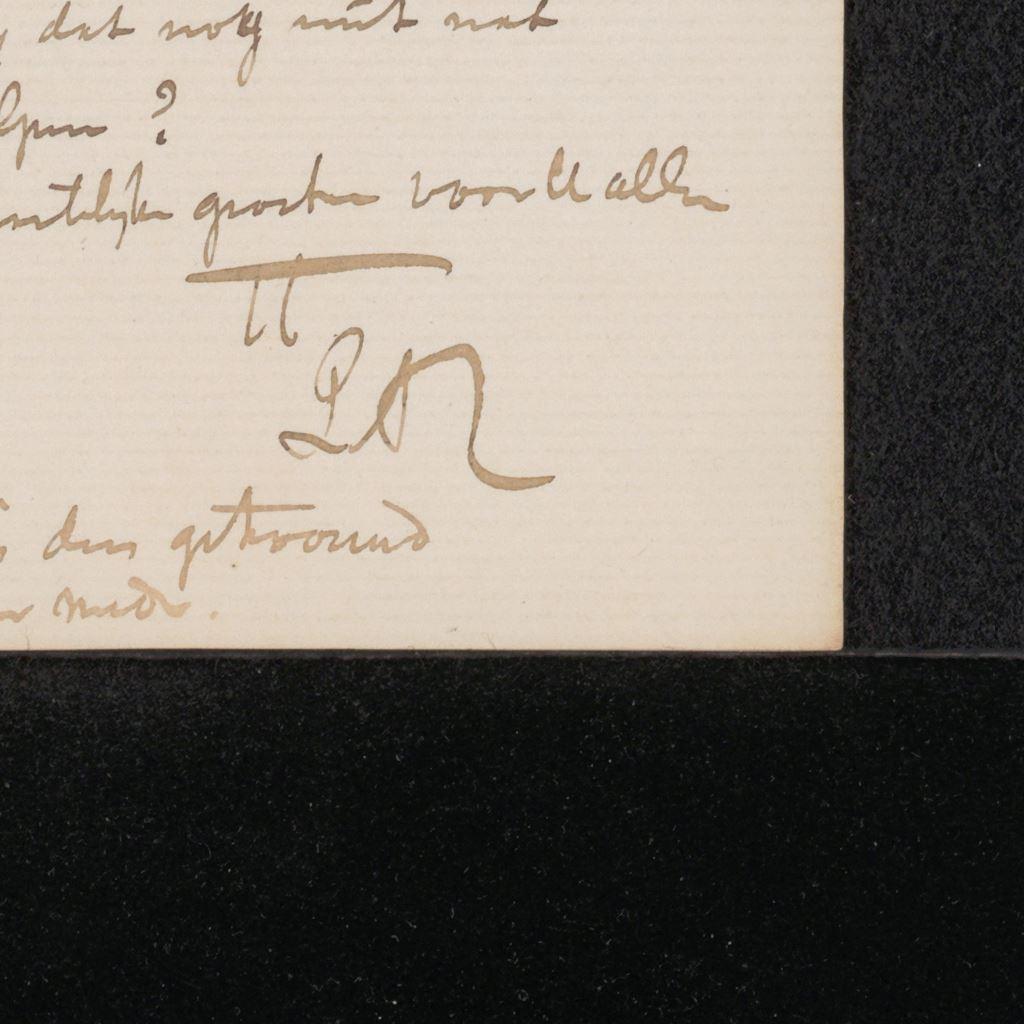 dat nog niet wat
lpen ?
ntelijke groeten voor U allen
TT
LR
den getrouwd
mede.